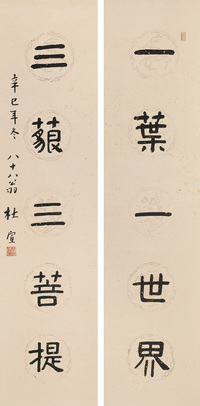 一葉一世界
三藐三菩提
辛巳年冬 八十八翁 杜宣